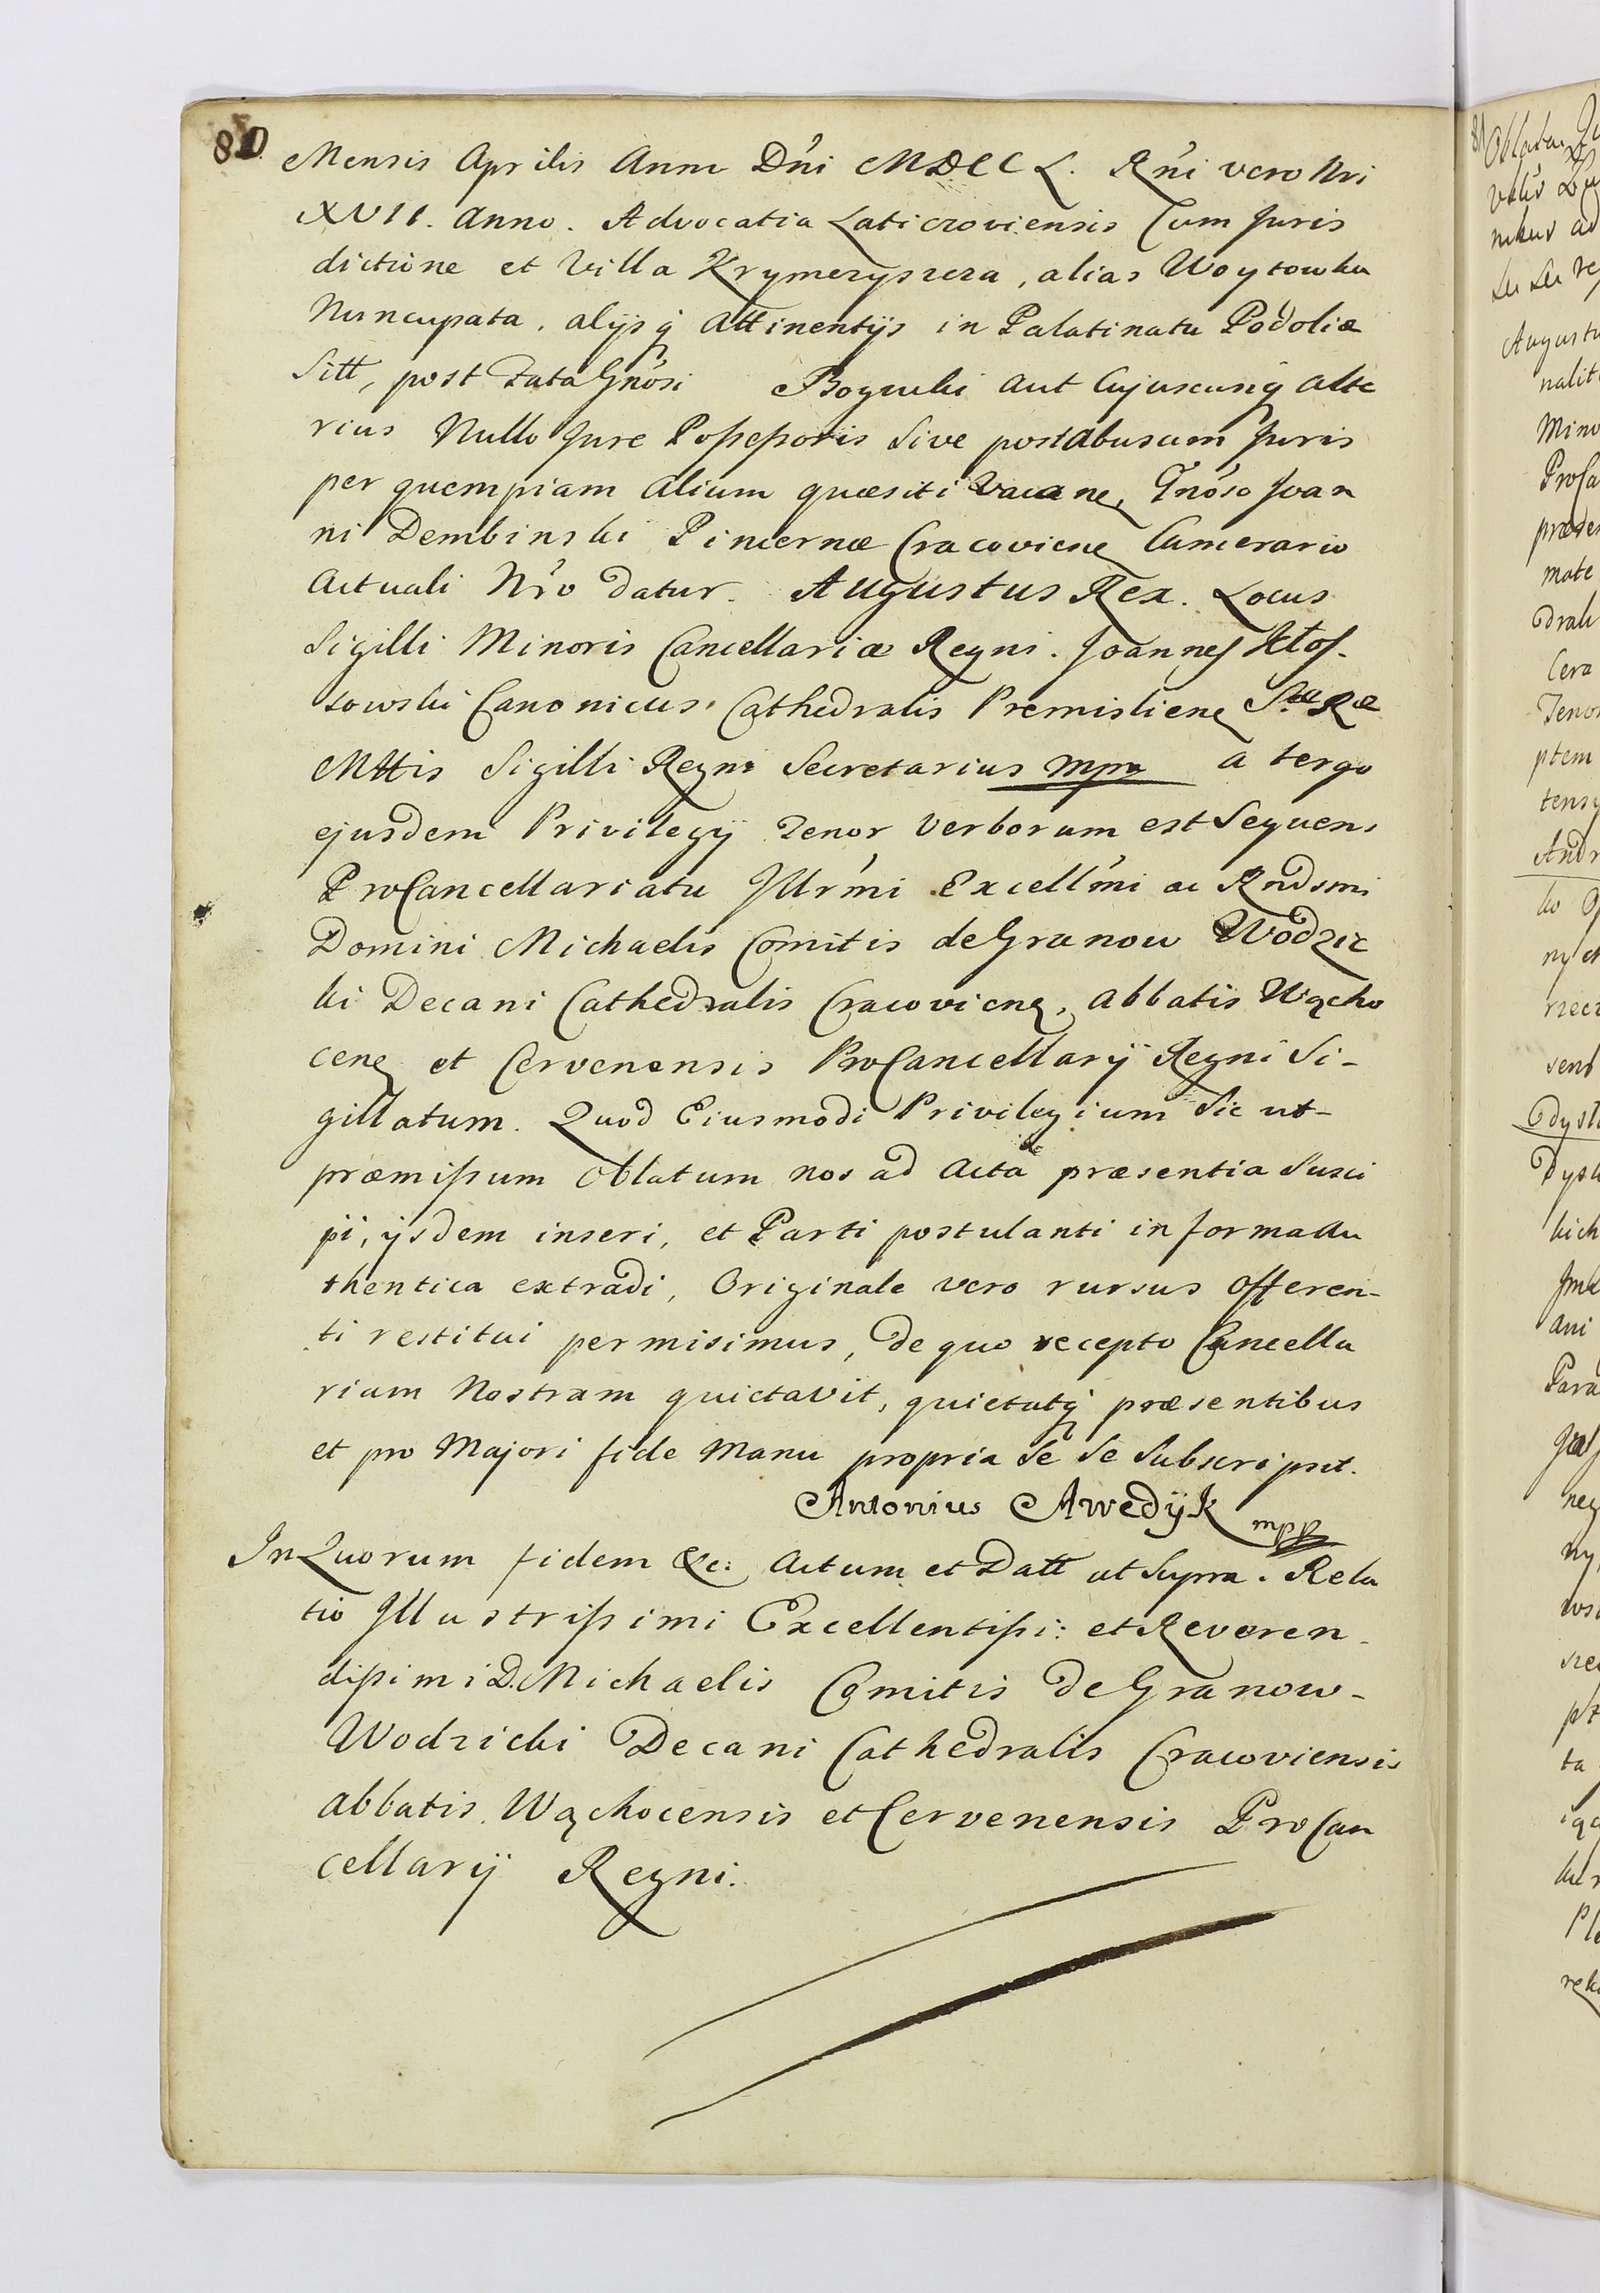 80
Mensis Aprilis Anno D'ni MDCCL. R'ni vero Nri
XVII. Anno. Advocatia Laticzoviensis Cum Juris
dictione et Villa Krymerzyszcza, alias Woytowka
Nuncupata, alijsq' Attinentijs in Palatinatu Podoliæ
Sitt, post Fata Gnosi Bogucki aut Cujuscunq' Alte
rius Nullo Jure Poßeßoris Sive post Abusum Juris
per quempiam Alium quæsiti Vacane, Gnoso Joan
ni Dembinski Pincernæ Cracoviene Camerario
Actuali Nr'o datur. Augustus Rex. Locus
Sigilli Minoris Cancellariæ Regni. Joannes Kłos-
sowski Canonicus Cathedralis Premisliene S. Ræ
Mttis Sigilli Regni Secretarius mpa a tergo
ejusdem Privilegij Tenor Verborum est Sequens
ProCancellariatu Jllr'mi Excell'mi ac Rndsmi
Domini Michaelis Comitis de Granow Wodzic
ki Decani Cathedralis Cracoviene, Abbatis Wącho
cene et Cervenensis ProCancellarij Regni Si-
gillatum. Quod Eiusmodi Privilegium Sic ut-
præmißum Oblatum nos ad Acta præsentia Susci
pi, ijsdem inseri, et Parti postulanti in forma Au
thentica extradi, Originale vero rursus Offeren-
ti restitui permisimus, de quo recepto Cancella
riam Nostram quietavit, quietatq' præsentibus
et pro Majori fide Manu propria Se Se Subscripsit.
Antonius Awedÿk mpp
In Quorum fidem &c: Actum et Datt ut Supra. Rela
tio Jllustrißimi Excellentißi: et Reveren-
dißimi D. Michaelis Comitis de Granow-
Wodzicki Decani Cathedralis Cracoviensis
Abbatis Wąchocensis et Cervenensis ProCan
cellarij Regni.